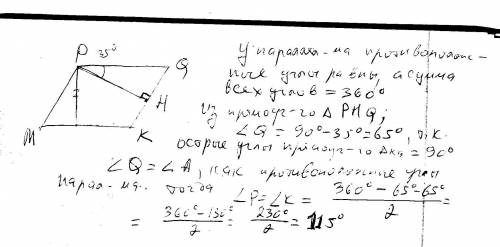 P 35° Q
H
M K
У паралл-ма противополож-
ные углы равны, а сумма
всех углов = 360°
Из прямоуг-го Δ PHQ;
∠Q = 90° - 35° = 65°, т.к.
острые углы прямоуг-го Δка = 90°
∠Q = ∠А, как противоположные углы
парал-ма. тогда ∠P = ∠K = (360° - 65° - 65°)/2 =
= (360° - 130°)/2 = 230°/2 = 115°